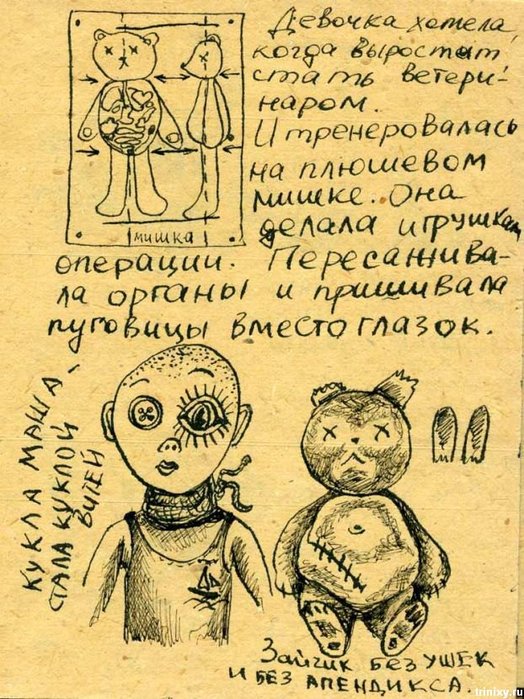 Девочка хотела,
когда выростит
стать ветери-
наром.
И тренеровалась
на плюшевом
мишке. Она
делала игрушкам
операции. Пересажива-
ла органы и пришивала
пуговицы вместо глазок.
мишка
КУКЛА МАША
СТАЛА КУКЛОЙ
ВУДЕЙ
Зайчик БЕЗ УШЕК
И БЕЗ АПЕНДИКСА.
trinixy.ru